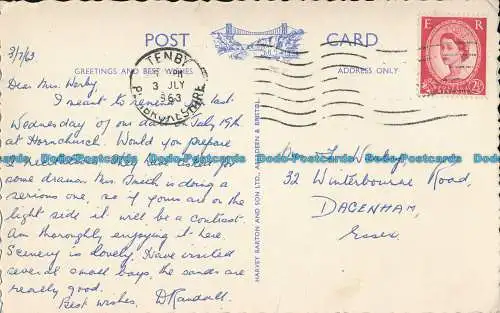 POST CARD
GREETINGS AND BEST WISHES
ADDRESS ONLY
TENBY
PM
3 JLY
1963
PEMBROKESHIRE
E R
2½D
3/7/63
Dear Mrs
I meant to last
Wednesday of our July 19th
at Hornchurch. Would you prepare
some drama Mrs Smith is doing a
serious one, so if yours are on the
light side it will be a contrast.
Am thoroughly enjoying it here.
Scenery is lovely. Have visited
several small bays, the sands are
really good.
Best wishes, D Randall.
HARVEY BARTON AND SON LTD., & BRISTOL
32 Winterbourne Road,
DAGENHAM,
Essex.
Dodo-Postcards Dodo-Postcards Dodo-Postcards Dodo-Postcards Dodo-Postcards Dodo-Postcards